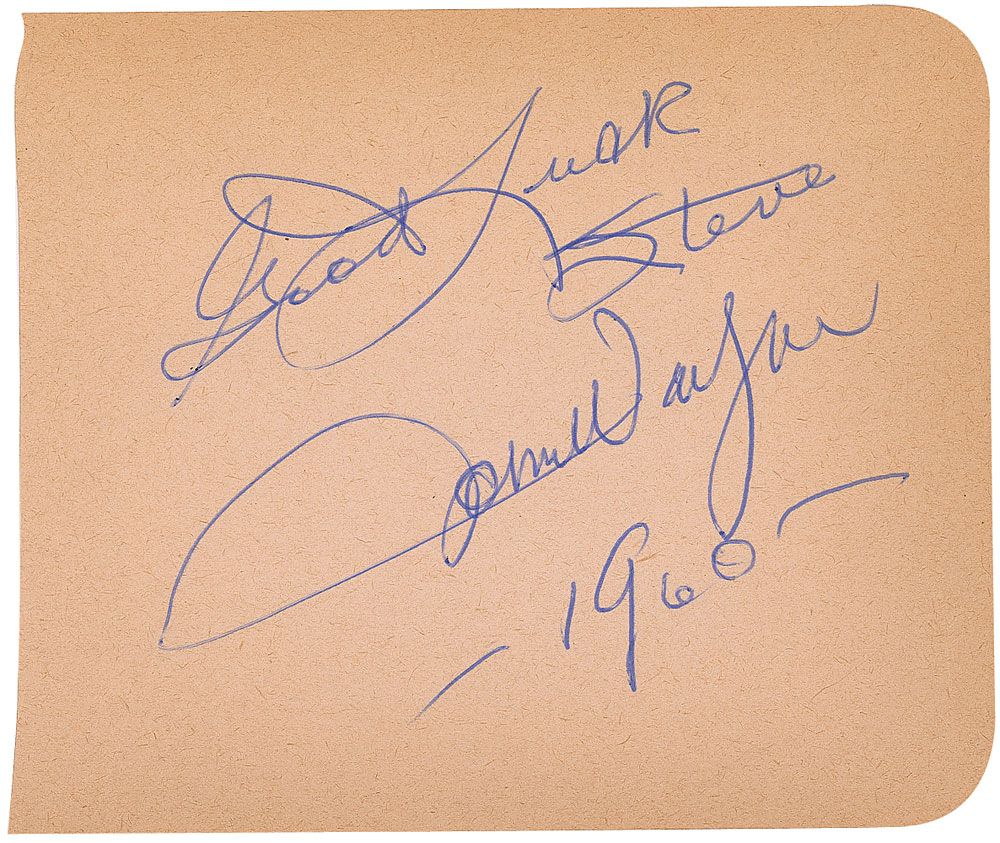 Good Luck
Steve
John Wayne
- 1960 -